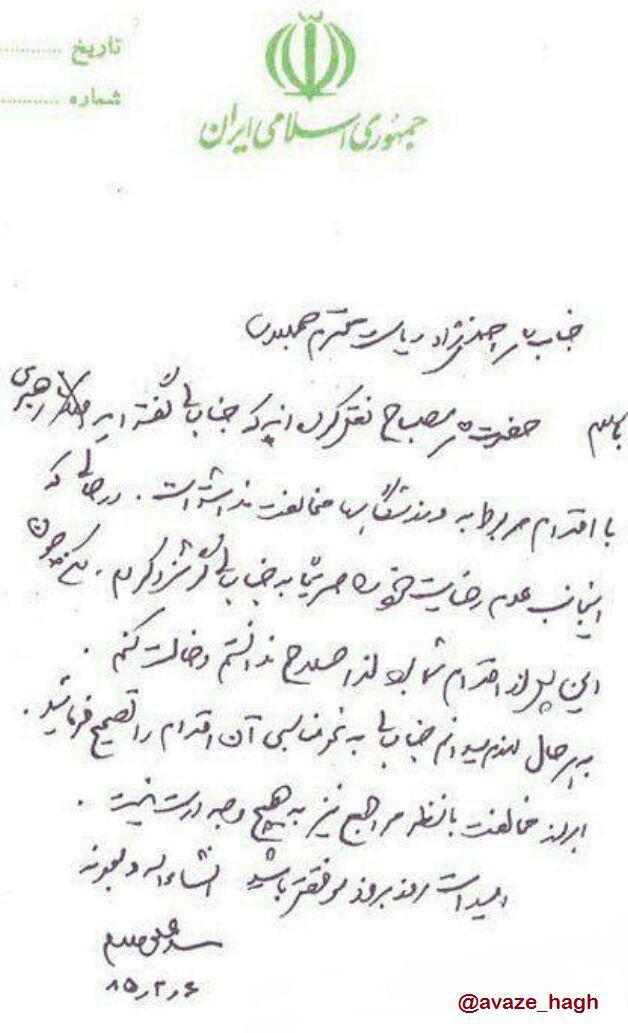 تاریخ ............
شماره ............
جمهوری اسلامی ایران
جناب آقای احمدی نژاد ریاست محترم جمهوری
با سلام حضرت آقای مصباح نقل کردند که جنابعالی گفته اید رهبری
با اقدام مربوط به ورزشگاهها مخالفت نداشته است. در حالی که
اینجانب عدم رضایت خود را صریحاً به جنابعالی گوشزد کردم. لکن چون
این پس از اقدام شما بود لذا صلاح ندانستم دخالت کنم.
به هر حال لازم میدانم جنابعالی به نحو مناسبی آن اقدام را تصحیح فرمائید.
ابراز مخالفت با نظر مراجع نیز به هیچ وجه درست نیست.
امید است روز بروز موفقتر باشید انشاءاله و بعونه
سید علی خامنه‌ای
۸۵/۲/۶
@avaze_hagh